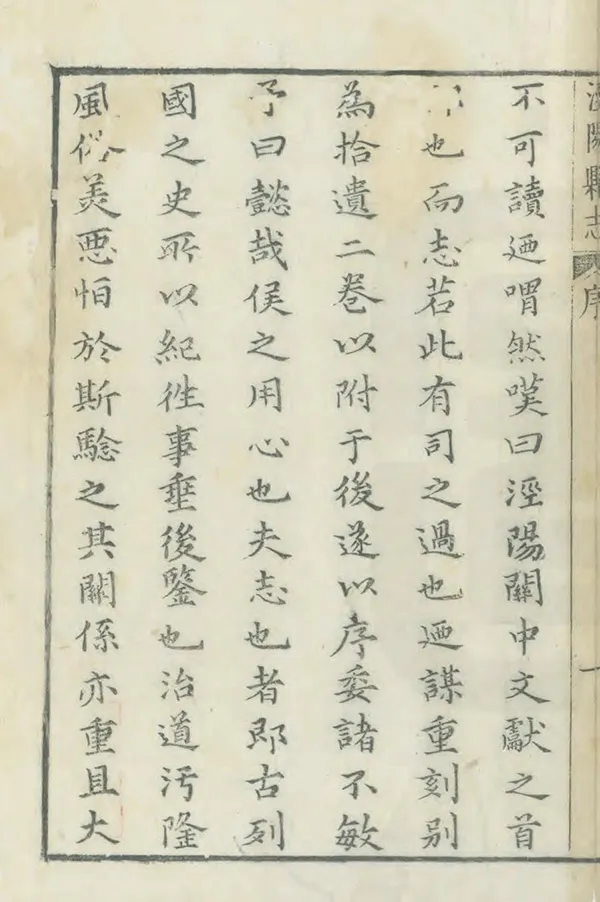 陽縣志 序 一
不可讀廼喟然嘆曰涇陽關中文獻之首
也而志若此有司之過也廼謀重刻别
為拾遺二卷以附于後遂以序委諸不敏
予曰懿哉侯之用心也夫志也者即古列
國之史所以紀徃事垂後鑒也治道污隆
風俗美惡怕於斯驗之其關係亦重且大